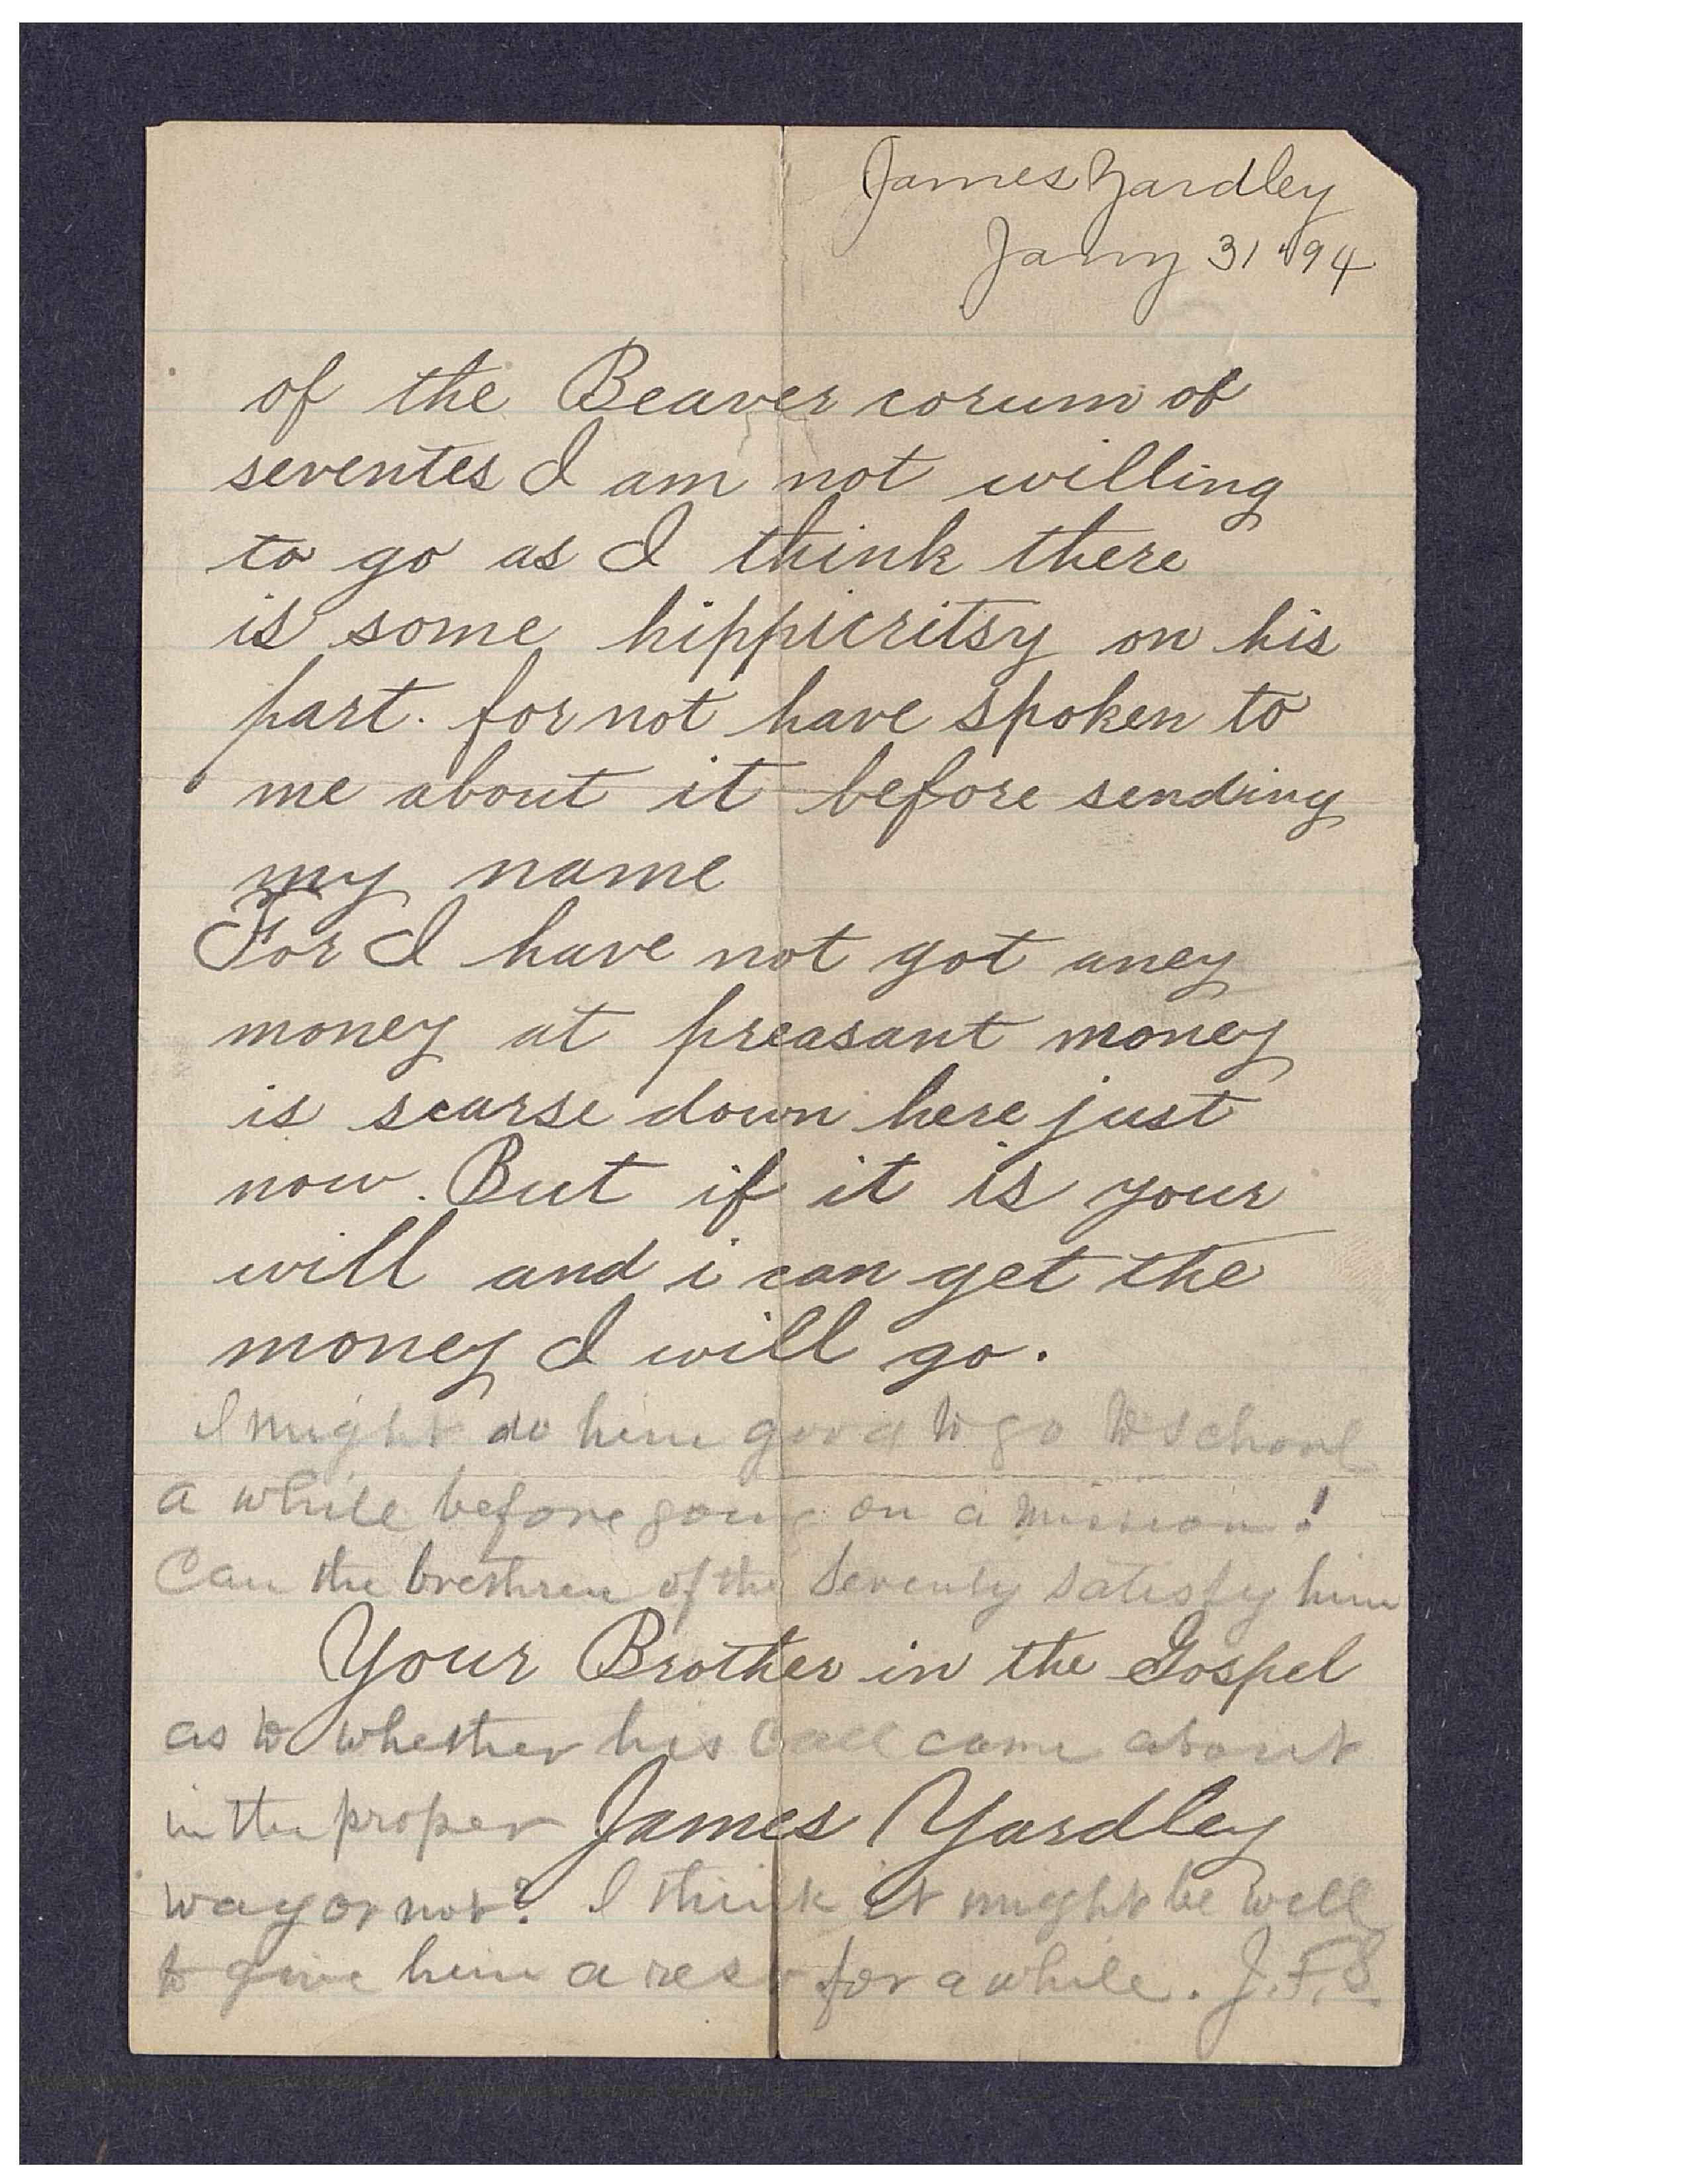 James Yardley
Jany 31 '94
of the Beaver corum of
seventes I am not willing
to go as I think there
is some hippicritsy on his
part. for not have spoken to
me about it before sending
my name
For I have not got aney
money at preasant money
is scarse down here just
now. But if it is your
will and i can get the
money I will go.
I might do him good to go to school
a while before going on a mission!
Can the brethren of the Seventy satisfy him
Your Brother in the Gospel
as to whether his Call came about
in the proper James Yardley
way or not? I think it might be well
to give him a rest for a while. J.F.S.